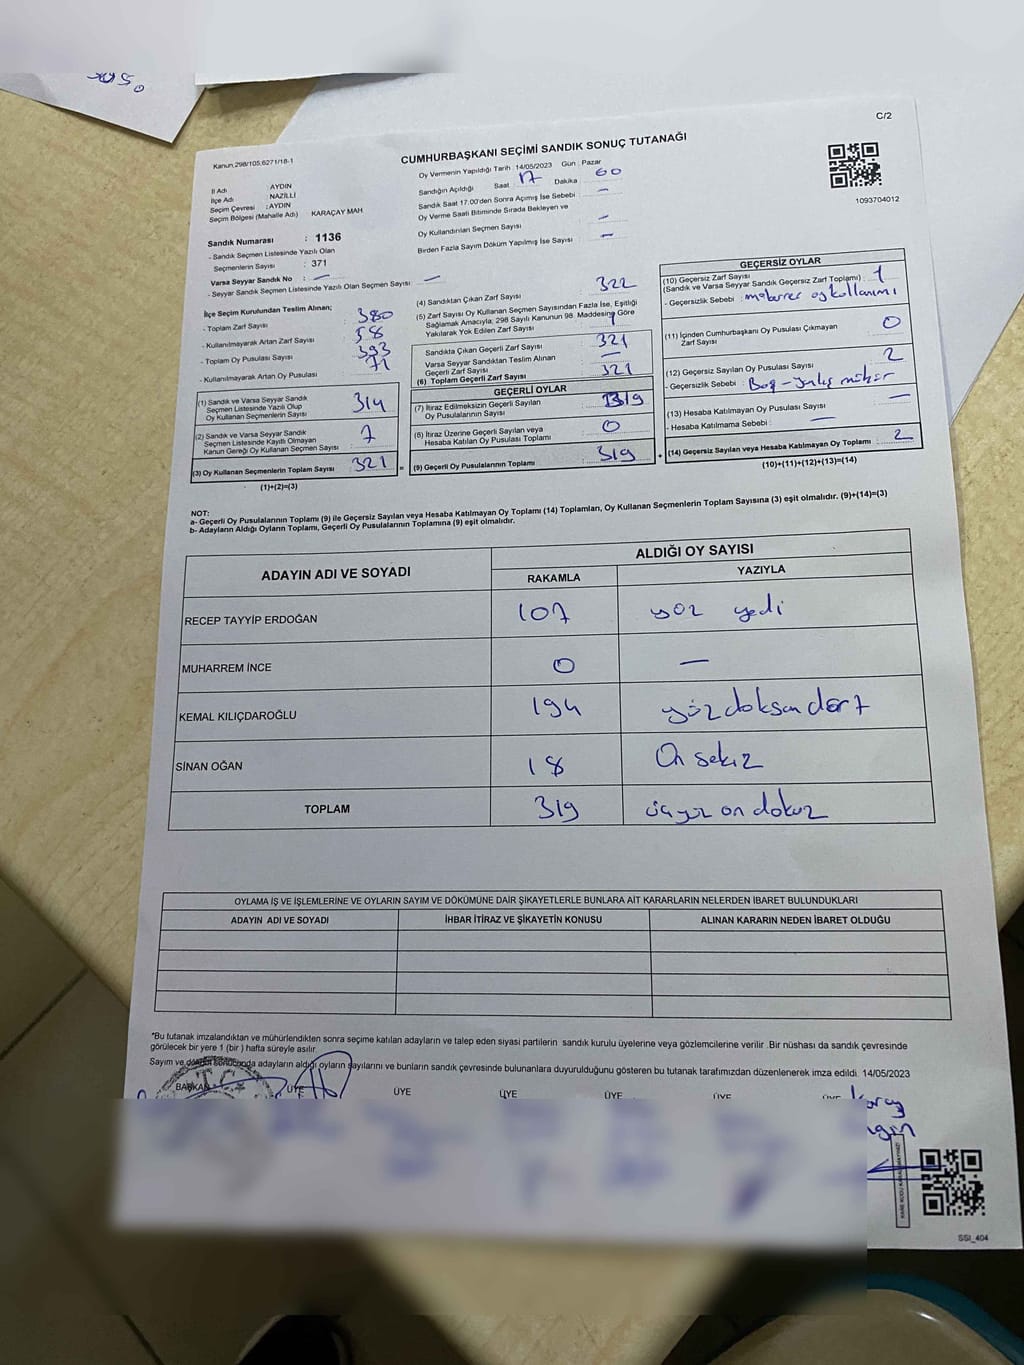 C/2
Kanun 298/105,6271/18-1
CUMHURBAŞKANI SEÇİMİ SANDIK SONUÇ TUTANAĞI
İl Adı AYDIN
İlçe Adı NAZİLLİ
Seçim Çevresi : AYDIN
Seçim Bölgesi (Mahalle Adı) KARAÇAY MAH.
Oy Vermenin Yapıldığı Tarih : 14/05/2023 Gün : Pazar
Sandığın Açıldığı Saat : 17 Dakika : 00
Sandık Saat 17.00'den Sonra Açımış İse Sebebi –
Oy Verme Saati Bitiminde Sırada Bekleyen ve
Oy Kullandırılan Seçmen Sayısı –
Birden Fazla Sayım Döküm Yapılmış İse Sayısı –
1093704012
Sandık Numarası : 1136
- Sandık Seçmen Listesinde Yazılı Olan
Seçmenlerin Sayısı : 371
Varsa Seyyar Sandık No : –
- Seyyar Sandık Seçmen Listesinde Yazılı Olan Seçmen Sayısı –
İlçe Seçim Kurulundan Teslim Alınan;
- Toplam Zarf Sayısı 380
- Kullanılmayarak Artan Zarf Sayısı 58
- Toplam Oy Pusulası Sayısı 393
- Kullanılmayarak Artan Oy Pusulası 71
(1) Sandık ve Varsa Seyyar Sandık
Seçmen Listesinde Yazılı Olup
Oy Kullanan Seçmenlerin Sayısı 314
(2) Sandık ve Varsa Seyyar Sandık
Seçmen Listesinde Kayıtlı Olmayan
Kanun Gereği Oy Kullanan Seçmen Sayısı 7
(3) Oy Kullanan Seçmenlerin Toplam Sayısı 321
(1)+(2)=(3)
(4) Sandıktan Çıkan Zarf Sayısı 322
(5) Zarf Sayısı Oy Kullanan Seçmen Sayısından Fazla İse, Eşitliği
Sağlamak Amacıyla; 298 Sayılı Kanunun 98. Maddesine Göre
Yakılarak Yok Edilen Zarf Sayısı 1
Sandıkta Çıkan Geçerli Zarf Sayısı 321
Varsa Seyyar Sandıktan Teslim Alınan
Geçerli Zarf Sayısı –
(6) Toplam Geçerli Zarf Sayısı 321
GEÇERLİ OYLAR
(7) İtiraz Edilmeksizin Geçerli Sayılan
Oy Pusulalarının Sayısı 319
(8) İtiraz Üzerine Geçerli Sayılan veya
Hesaba Katılan Oy Pusulası Toplamı 0
(9) Geçerli Oy Pusulalarının Toplamı 319
GEÇERSİZ OYLAR
(10) Geçersiz Zarf Sayısı
(Sandık ve Varsa Seyyar Sandık Geçersiz Zarf Toplamı) : 1
- Geçersizlik Sebebi : mükerrer oy kullanımı
(11) İçinden Cumhurbaşkanı Oy Pusulası Çıkmayan
Zarf Sayısı 0
(12) Geçersiz Sayılan Oy Pusulası Sayısı 2
- Geçersizlik Sebebi : Boş - yanlış mühür
(13) Hesaba Katılmayan Oy Pusulası Sayısı –
- Hesaba Katılmama Sebebi : –
(14) Geçersiz Sayılan veya Hesaba Katılmayan Oy Toplamı : 2
(10)+(11)+(12)+(13)=(14)
NOT:
a- Geçerli Oy Pusulalarının Toplamı (9) ile Geçersiz Sayılan veya Hesaba Katılmayan Oy Toplamı (14) Toplamları, Oy Kullanan Seçmenlerin Toplam Sayısına (3) eşit olmalıdır. (9)+(14)=(3)
b- Adayların Aldığı Oyların Toplamı, Geçerli Oy Pusulalarının Toplamına (9) eşit olmalıdır.
ADAYIN ADI VE SOYADI ALDIĞI OY SAYISI
RAKAMLA YAZIYLA
RECEP TAYYİP ERDOĞAN 107 yüz yedi
MUHARREM İNCE 0 –
KEMAL KILIÇDAROĞLU 194 yüz doksan dört
SİNAN OĞAN 18 On sekiz
TOPLAM 319 üçyüz on dokuz
OYLAMA İŞ VE İŞLEMLERİNE VE OYLARIN SAYIM VE DÖKÜMÜNE DAİR ŞİKAYETLERLE BUNLARA AİT KARARLARIN NELERDEN İBARET BULUNDUKLARI
ADAYIN ADI VE SOYADI İHBAR İTİRAZ VE ŞİKAYETİN KONUSU ALINAN KARARIN NEDEN İBARET OLDUĞU
*Bu tutanak imzalandıktan ve mühürlendikten sonra seçime katılan adayların ve talep eden siyasi partilerin sandık kurulu üyelerine veya gözlemcilerine verilir. Bir nüshası da sandık çevresinde
görülecek bir yere 1 (bir) hafta süreyle asılır.
Sayım ve döküm sonucunda adayların aldığı oyların sayılarını ve bunların sandık çevresinde bulunanlara duyurulduğunu gösteren bu tutanak tarafımızdan düzenlenerek imza edildi. 14/05/2023
BAŞKAN ÜYE ÜYE ÜYE ÜYE ÜYE ÜYE
SSI_404